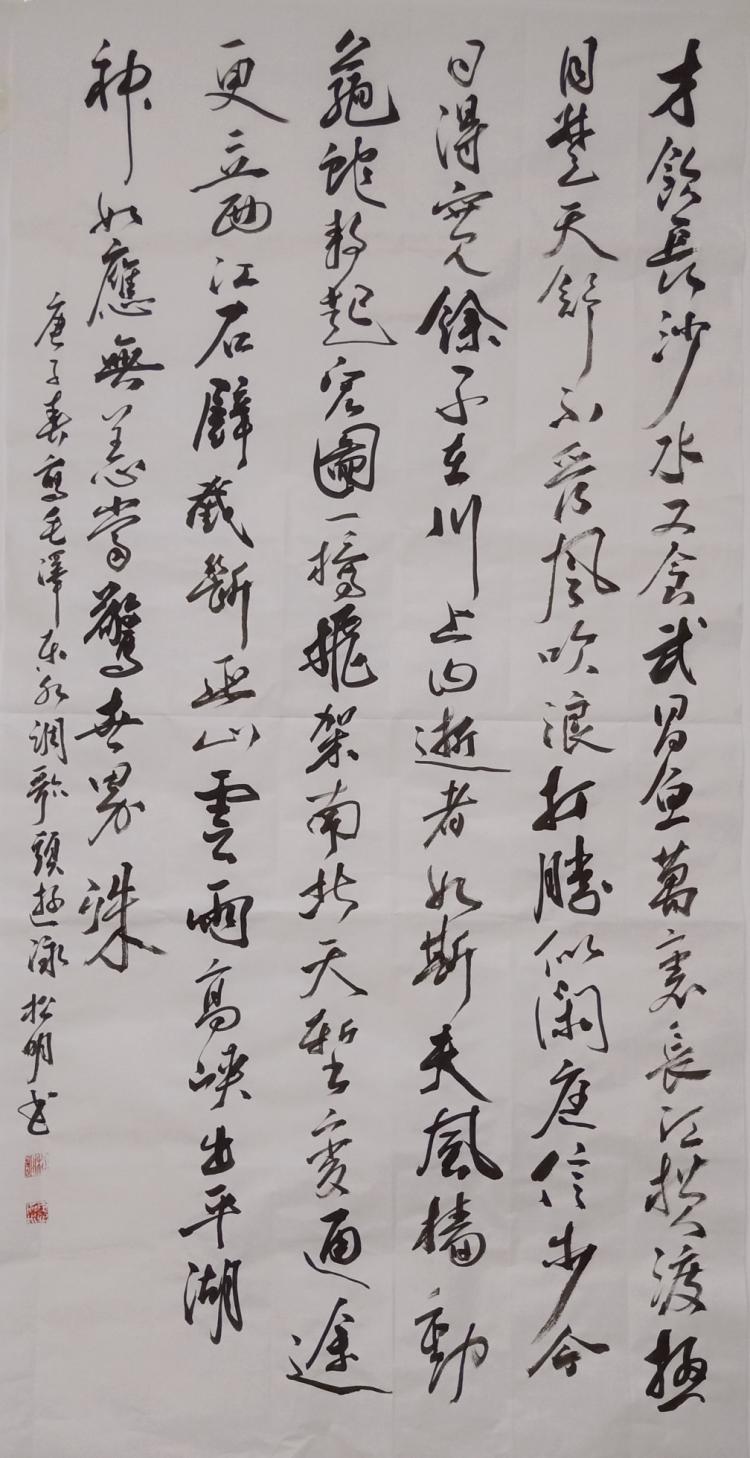 才飲長沙水又食武昌魚萬裏長江橫渡極
目楚天舒不管風吹浪打勝似閑庭信步今
日得寬餘子在川上曰逝者如斯夫風檣動
龜蛇靜起宏圖一橋飛架南北天塹變通途
更立西江石壁截斷巫山雲雨高峽出平湖
神如應無恙當驚世界殊
庚子春寫毛澤東水調歌頭遊泳松明書